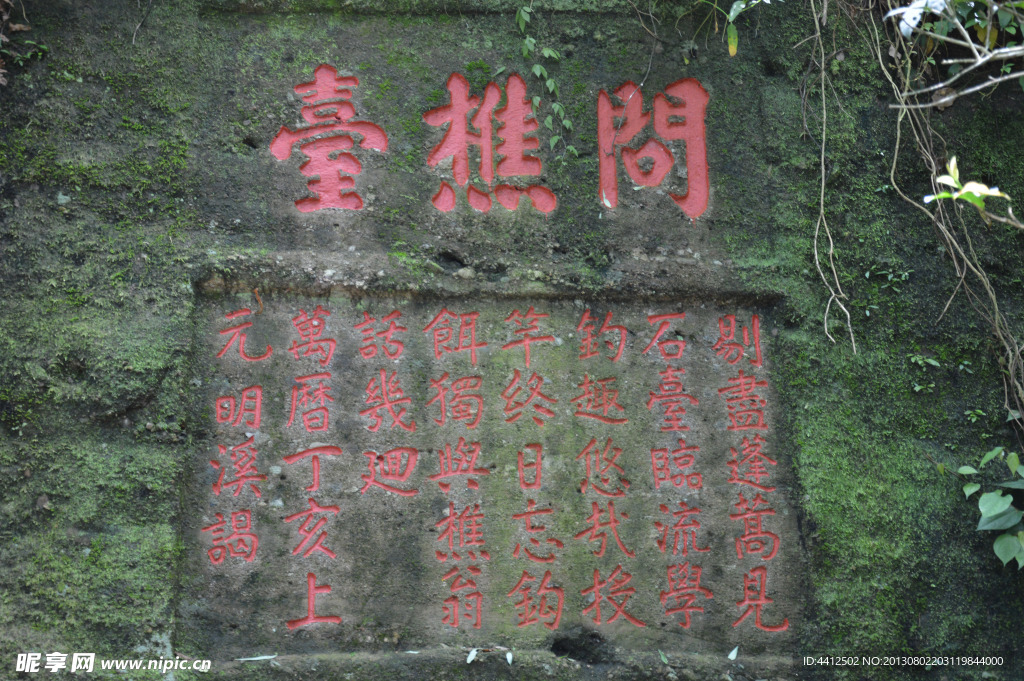 問樵臺
剔盡蓬蒿見
石臺臨流學
釣趣悠哉投
竿終日忘鈎
餌獨與樵翁
話幾廻
萬曆丁亥上
元明溪謁
昵享网 www.nipic.cn
ID:4412502 NO:20130802203119844000